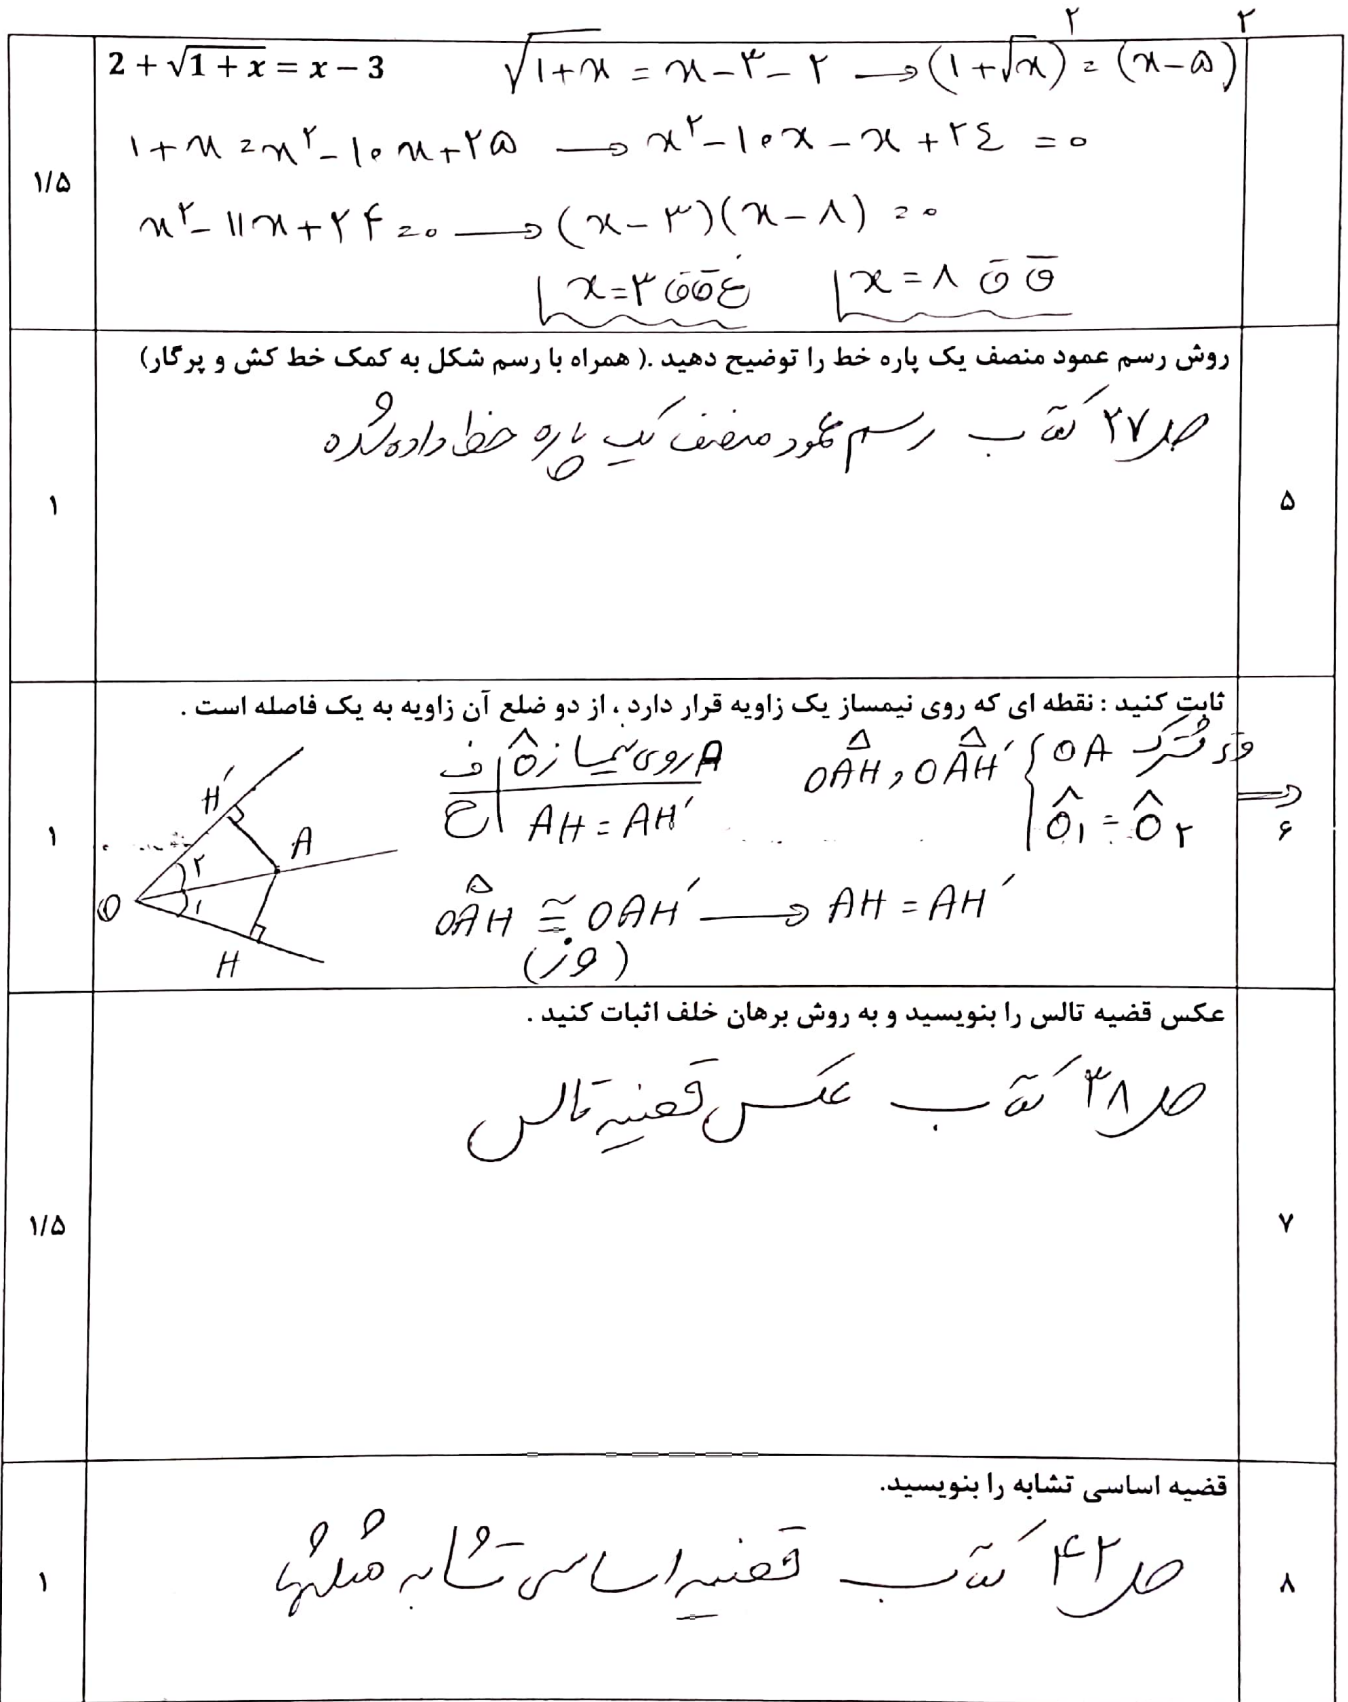 2 + √1 + x = x − 3 √۱+x = x − ۳ − ۲ → (۱ + √x)^۲ = (x − ۵)^۲
۱ + x = x^۲ − ۱۰x + ۲۵ → x^۲ − ۱۰x − x + ۲٤ = ۰
۱/۵
x^۲ − ۱۱x + ۲۴ = ۰ → (x − ۳)(x − ۸) = ۰
x = ۳ غ ق ق x = ۸ ق ق
روش رسم عمود منصف یک پاره خط را توضیح دهید .( همراه با رسم شکل به کمک خط کش و پرگار)
صد ۳۷ کتاب رسم عمود منصف یک پاره خط داده شده
۵
۱
ثابت کنید : نقطه ای که روی نیمساز یک زاویه قرار دارد ، از دو ضلع آن زاویه به یک فاصله است .
ف | A روی نیمساز Ô
OÂH , OÂH′ { OA وتر مشترک
ح | AH = AH′
Ô۱ = Ô۲ ⇒
۶
۱
H′
A
۲
۱
O
H
OÂH ≅ OAH′ → AH = AH′
(وز)
عکس قضیه تالس را بنویسید و به روش برهان خلف اثبات کنید .
صد ۳۸ کتاب عکس قضیه تالس
۷
۱/۵
قضیه اساسی تشابه را بنویسید.
صد ۴۲ کتاب قضیه اساسی تشابه مثلثها
۸
۱